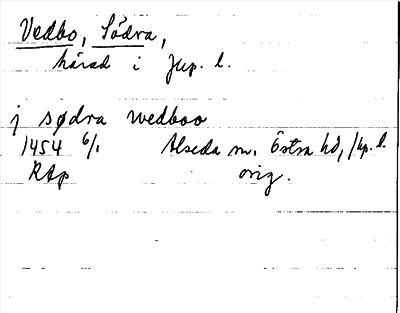 Vedbo, Södra,
härad i Jkp. l.
j södra wedboo
1454 6/1 Alseda sn, Östra hd, Jkp. l.
RAp orig.